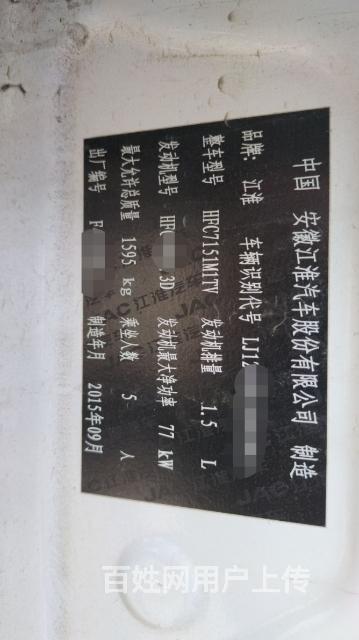 中国 安徽江淮汽车股份有限公司 制造
品牌: 江淮 车辆识别代号 LJ12
整车型号 HFC7151M1TV 发动机排量 1.5 L
发动机型号 HFC 3D 发动机最大净功率 77 kW
最大允许总质量 1595 kg 乘坐人数 5 人
出厂编号 F 制造年月 2015年09月
百姓网用户上传